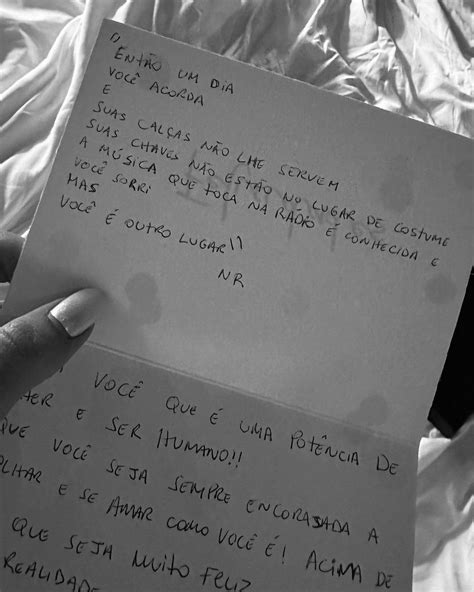 "ENTÃO UM DIA
VOCÊ ACORDA
E
SUAS CALÇAS NÃO LHE SERVEM
SUAS CHAVES NÃO ESTÃO NO LUGAR DE COSTUME
A MÚSICA QUE TOCA NA RÁDIO É CONHECIDA E
VOCÊ SORRI
MAS
VOCÊ É OUTRO LUGAR"
NR
VOCÊ QUE É UMA POTÊNCIA DE
E SER HUMANO!!
QUE VOCÊ SEJA SEMPRE ENCORAJADA A
OLHAR E SE AMAR COMO VOCÊ É! ACIMA DE
QUE SEJA MUITO FELIZ
REALIDADE